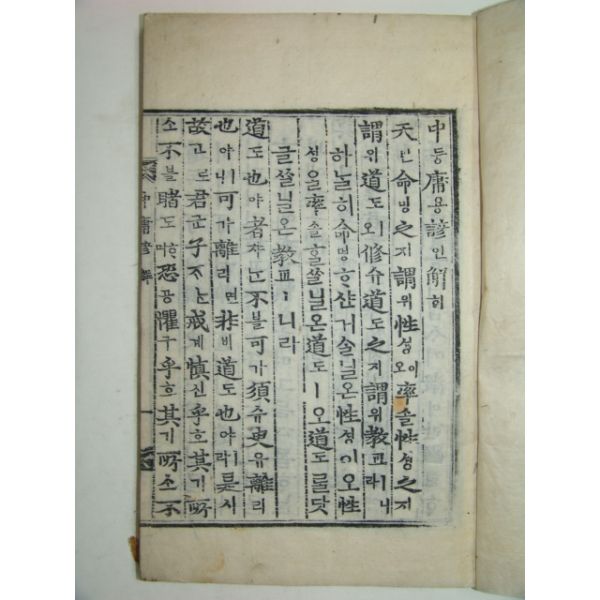 中듕庸용諺언解ᄒᆡ
天텬命명之지謂위性셩이오率솔性셩之지
謂위道도ㅣ오修슈道도之지謂위敎교ㅣ니라
하ᄂᆞᆯ히命명ᄒᆞ샨거슬닐온性셩이오性
셩을率솔ᄒᆞᆯᄊᆞᆯ닐온道도ㅣ오道도ᄅᆞᆯ닷
글ᄊᆞᆯ닐온敎교ㅣ니라
道도也야者쟈ᄂᆞᆫ不블可가須슈臾유離리
也야ㅣ니可가離리면非비道도也야ㅣ라是시
故고로君군子ᄌᆞᄂᆞᆫ戒계愼신乎호其기所
소不블睹도ᄒᆞ며恐공懼구乎호其기所소不
中庸諺解 一